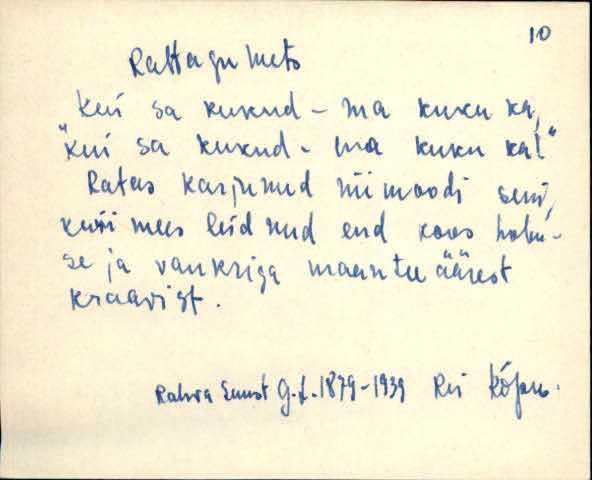 10
Rattagu mets
Kui sa kukud – ma kuku ka,
"kui sa kukud – ma kuku ka!"
Ratas karjunud niimoodi seni,
kuni mees leidnud end koos hobu-
se ja vankriga maantee äärest
kraavist.
Rahva Ernst G. f. 1879–1939 Rei Kõpu.